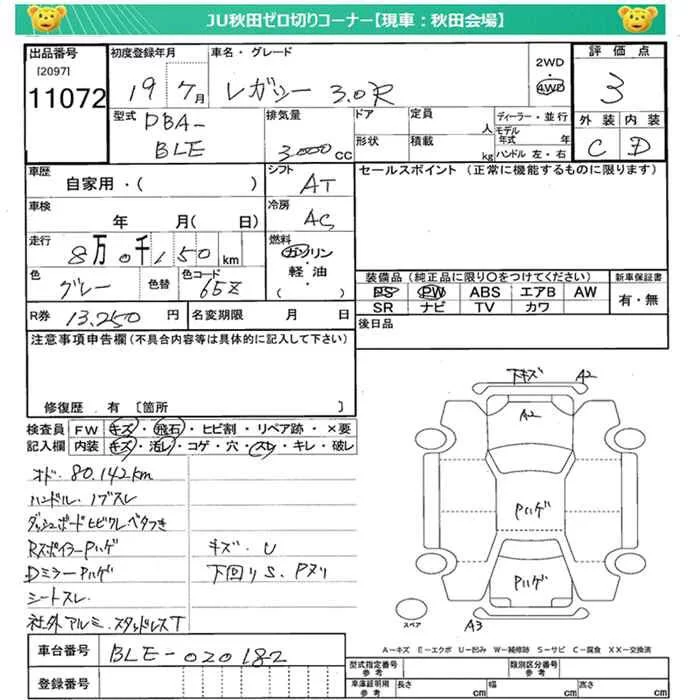 JU秋田ゼロ切りコーナー【現車：秋田会場】
出品番号
[2097]
11072
初度登録年月
19 7月
車名・グレード
レガシー 3.0R
2WD
4WD
評価点
3
外装 内装
C D
型式
DBA-
BLE
排気量
3000cc
ドア
定員
人
形状
積載
kg
ディーラー・並行
モデル年式 年
ハンドル 左・右
車歴
自家用・( )
シフト
AT
車検
年 月( 日)
冷房
AC
走行
8万0千150km
燃料
ガソリン・
軽油・
( )
色
グレー
色替
色コード
65Z
R券 13,250円
名変期限 月 日
セールスポイント (正常に機能するものに限ります)
装備品(純正品に限り○をつけてください)
PS PW ABS エアB AW
SR ナビ TV カワ
新車保証書
有・無
後日品
注意事項申告欄(不具合内容等は具体的に記入して下さい)
修復歴 有 [箇所 ]
検査員
記入欄
FW キズ・飛石・ヒビ割・リペア跡・×要
内装 キズ・汚レ・コゲ・穴・スレ・キレ・破レ
オド. 80.142km
ハンドル. ノブスレ
ダッシュボードヒビワレベタつき
RスポイラーPハゲ
DミラーPハゲ
シートスレ
社外アルミ.スタッドレスT
キズ.U
下回りS.Pヌリ
下キズ A2
A2
Pハゲ
Pハゲ
A3
スペア
A-キズ E-エクボ U-凹み W-補修跡 S-サビ C-腐食 XX-交換済
車台番号 BLE-020182
登録番号
型式指定番号
参考
類別区分番号
参考
車庫証明用
参考
長さ cm
幅 cm
高さ cm